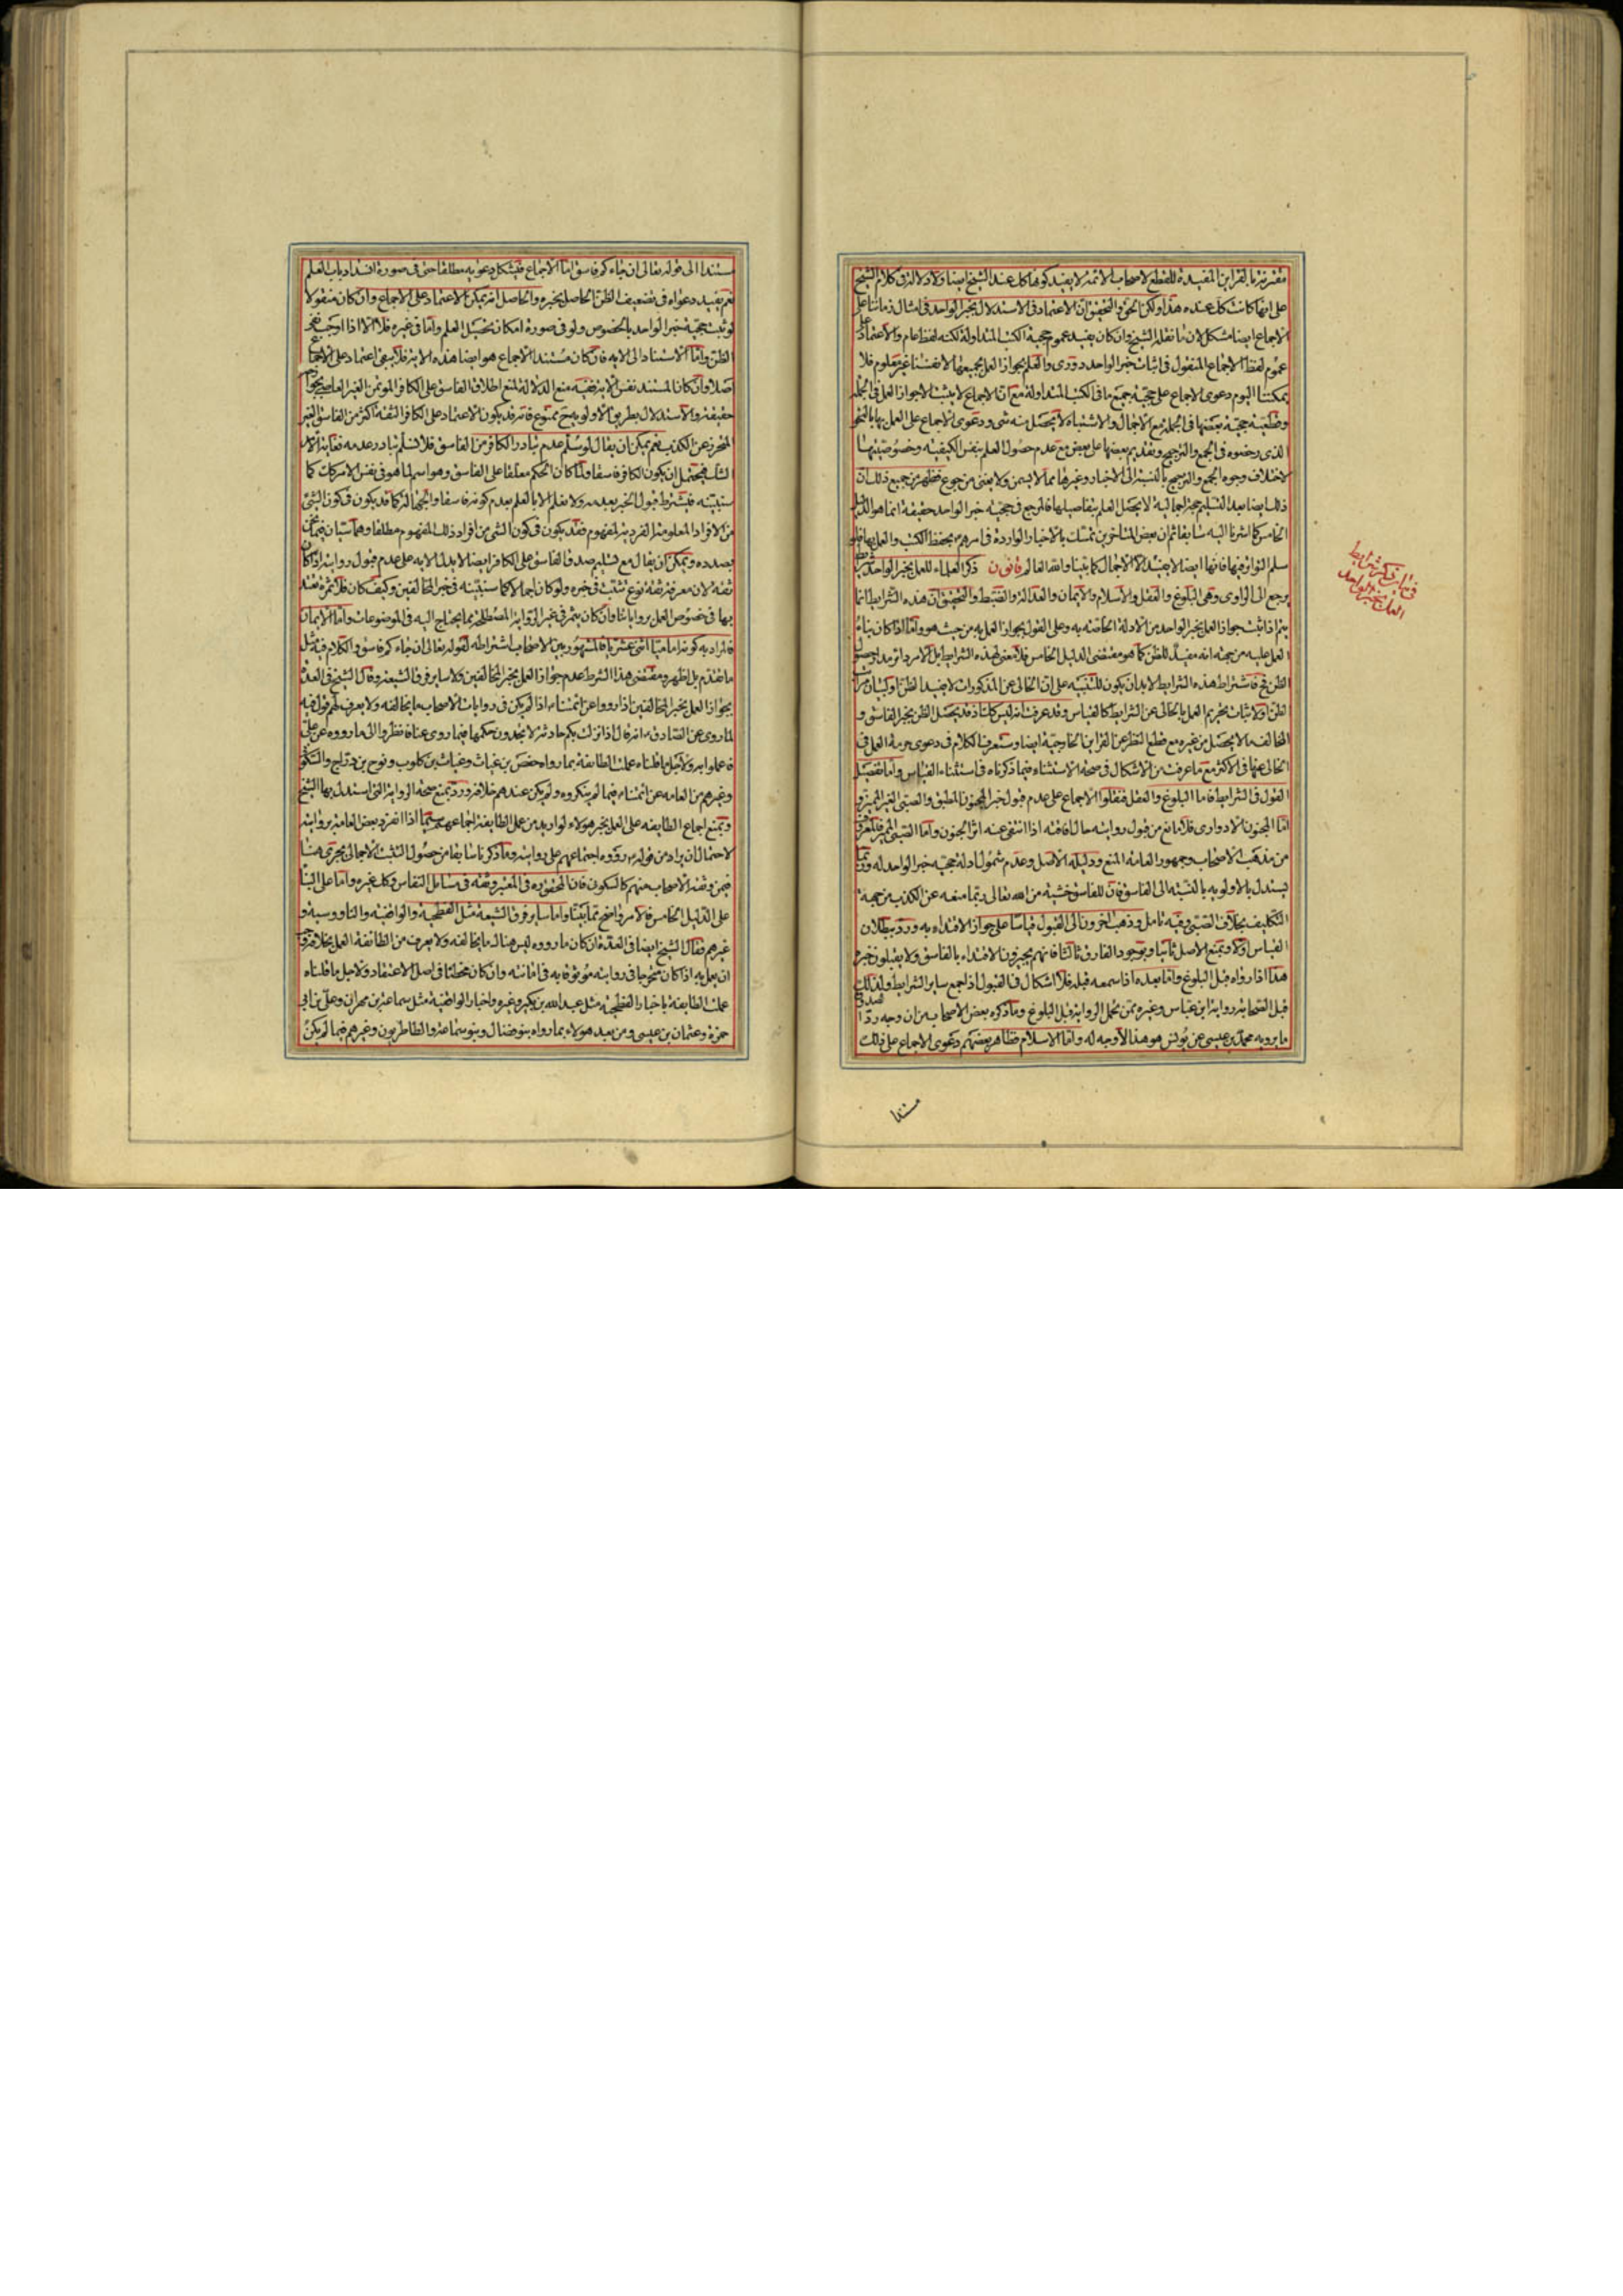 مقترنة بالقراين المفيدة للقطع لاصحاب الائمة لا يفيد كونها كك عند الشيخ ايضا ولا دلالة فى كلام الشيخ
على انها كانت كك عنده هذا ولكن الحق والتحقيق ان الاعتماد فى الاستدلال بخبر الواحد فى امثال زماننا على
الاجماع ايضا مشكل لان ما نقله الشيخ وان كان يفيد عموم حجية الكتب المتداولة لكنه لفظ عام والاعتماد على
عموم لفظ الاجماع المنقول فى اثبات خبر الواحد دورى والعلم بجواز العمل بجميعها لانفسنا غير معلوم فلا
يمكننا اليوم دعوى الاجماع على حجية جميع ما فى الكتب المتداولة مع ان الاجماع لا يثبت الا جواز العمل فى الجملة
وقطعية حجية بعضها فى الجملة مع الاجمال والاشتباه لا يحصل منه شى ودعوى الاجماع على العمل بها بالنحو
الذى رخصوه فى الجمع والترجيح وتقديم بعضها على بعض مع عدم حصول العلم بنفس الكيفية وخصوصيتها
لاختلاف وجوه الجمع والترجيح بالنسبة الى الاخبار وغيرها مما لا يسمن ولا يغنى من جوع فظهر من جميع ذلك ان
ذلك ايضا بعد التسليم حجة اجمالية لا يحصل العلم بتفاصيلها فالمرجع فى حجية خبر الواحد حقيقة انما هو الدليل
الخامس كما اشرنا اليه سابقا ثم ان بعض المتاخرين تمسك بالاخبار الواردة فى امرهم بحفظ الكتب والعمل بها فلو
سلم التواتر فيها فانها ايضا لا يفيد الا الاجمال كما بينا والله العالم قانون ذكر العلماء للعمل بخبر الواحد شرايط
يرجع الى الراوى وهى البلوغ والعقل والاسلام والايمان والعدالة والضبط والتحقيق ان هذه الشرايط انما
يتم اذا ثبت جواز العمل بخبر الواحد من الادلة الخاصة به وعلى القول بجواز العمل به من حيث هو واما اذا كان بناء
العمل عليه من جهة انه مفيد للظن كما هو مقتضى الدليل الخامس فلا معنى لهذه الشرايط بل الامر دائر مدار حصول
الظن فح فاشتراط هذه الشرايط لا بد ان يكون للتنبيه على ان الخالى عن المذكورات لا يفيد الظن او لبيان مراتب
الظن او لاثبات تحريم العمل بالخالى عن الشرايط كالقياس وقد عرفت انه ليس كك اذ قد يحصل الظن بخبر الفاسق و
المخالف ما لا يحصل من غيره مع قطع النظر عن القراين الخارجية ايضا وستعرف الكلام فى دعوى حرمة العمل فى
الخالى عنها فى الاكثر مع ما عرفت من الاشكال فى صحة الاستثناء فيما ذكرناه فى استثناء القياس واما تفصيل
القول فى الشرايط فاما البلوغ والعقل فنقلوا الاجماع على عدم قبول خبر المجنون المطبق والصبى الغير المميز و
اما المجنون الادوارى فلا مانع من قبول روايته حال افاقته اذا انتفى عنه اثر الجنون واما الصبى المميز فالمعروف
من مذهب الاصحاب وجمهور العامة المنع ودليله الاصل وعدم شمول ادلة حجية خبر الواحد له وربما
يستدل بالاولوية بالنسبة الى الفاسق فان للفاسق خشية من الله تعالى ربما منعه عن الكذب من جهة
التكليف بخلاف الصبى وفيه تامل وذهب اخرون الى القبول قياسا على جواز الاقتداء به ورد ببطلان
القياس اولا وبمنع الاصل ثانيا وبوجود الفارق ثالثا فانهم يجيزون الاقتداء بالفاسق ولا يقبلون خبره
هذا اذا رواه قبل البلوغ واما بعده اذا سمعه قبله فلا اشكال فى القبول اذا جمع ساير الشرايط ولذلك
قبل الصحابة رواية ابن عباس وغيره ممن تحمل الرواية قبل البلوغ وما ذكره بعض الاصحاب من ان وجه رد الصدوق
ما يرويه محمد بن عيسى عن يونس هو هذا لا وجه له واما الاسلام فظاهر بعضهم دعوى الاجماع على ذلك
مستندا
فى بيان ذكر شرايط
العمل بخبر الواحد
مستندا الى قوله تعالى ان جاءكم فاسق اما الاجماع فيشكل دعويه مطلقا حتى فى صورة انسداد باب العلم
نعم يفيد دعواه فى تضعيف الظن الحاصل بخبره والحاصل انه يمكن الاعتماد على الاجماع وان كان منقولا
لو ثبت حجية خبر الواحد بالخصوص ولو فى صورة امكان تحصيل العلم واما فى غيره فلا الا اذا اوجب نفى
الظن واما الاستناد الى الاية فان كان مستند الاجماع هو ايضا هذه الاية فلا يبقى اعتماد على الاجماع
اصلا وان كان المستند نفس الاية ففيه منع الدلالة لمنع اطلاق الفاسق على الكافر الموتمن الغير العاصى بجوارحه
حقيقة والاستدلال بطريق الاولوية ح ممنوع فانه قد يكون الاعتماد على الكافر الثقة اكثر من الفاسق الغير
المتحرز عن الكذب نعم يمكن ان يقال لو سلم عدم تبادر الكافر من الفاسق فلا نسلم تبادر عدمه فغاية الامر
الشك فيحتمل ان يكون الكافر فاسقا ولما كان الحكم معلقا على الفاسق وهو اسم لما هو فى نفس الامر كك كما
سنبينه فيشترط قبول الخبر بعدمه ولا نعلم الا بالعلم بعدم كونه فاسقا والجهالة كما قد يكون فى كون الشىء
من الافراد المعلومة الفردية لمفهوم فقد يكون فى كون الشى من افراد ذلك المفهوم مطلقا وهما سيان فيما نحن
بصدده ويمكن ان يقال مع تسليم صدق الفاسق على الكافر ايضا لا يدل الاية على عدم قبول روايته اذا كان
ثقة لان معرفة ثقته نوع تثبت فى خبره ولو كان اجماليا كما سنبينه فى خبر المخالفين وكيف كان فلا ثمرة نعتد
بها فى خصوص العمل برواياتنا وان كان يثمر فى غير الرواية المصطلحة مما يحتاج اليه فى الموضوعات واما الايمان
فالمراد به كونه اماميا اثنى عشريا فالمشهور بين الاصحاب اشتراطه لقوله تعالى ان جاءكم فاسق والكلام فيه مثل
ما تقدم بل اظهر ومقتضى هذا الشرط عدم جواز العمل بخبر المخالفين ولا ساير فرق الشيعة وقال الشيخ فى العدة
بجواز العمل بخبر المخالفين اذا رووا عن ائمتناء اذا لم يكن فى روايات الاصحاب ما يخالفه ولا يعرف لهم قول فيه
لما روى عن الصادق ء انه قال اذا نزلت بكم حادثة لا تجدون حكمها فيما روى عنا فانظروا الى ما رووه عن على
فاعملوا به ولاجل ما قلناه عملت الطائفة بما رواه حفص بن غياث وغياث بن كلوب ونوح بن دراج والسكونى
وغيرهم من العامه عن ائمتناء فيما لم ينكروه ولم يكن عندهم خلافه ورد بمنع صحة الرواية التى استدل بها الشيخ
وبمنع اجماع الطايفه على العمل بخبر هؤلاء لو اريد من عمل الطايفة اجماعهم سيما اذا انفرد بعض العامية بروايته
لاحتمال ان يراد من قوله رووه اجتماعهم على روايته وما ذكرنا سابقا من حصول التثبت الاجمالى يجرى هنا
فيمن وثقه الاصحاب منهم كالسكونى فان المحقق ره فى المعتبر وثقه فى مسائل النفاس وكك غيره واما على البناء
على الدليل الخامس فالامر واضح مما بينا واما ساير فرق الشيعة مثل الفطحية والواقفية والناووسية و
غيرهم فقال الشيخ ايضا فى العدة ان كان ما رووه ليس هناك ما يخالفه ولا يعرف من الطائفة العمل بخلافه وجب
ان يعمل به اذا كان متحرجا فى روايته موثوقا به فى امانته وان كان مخطئا فى اصل الاعتقاد ولاجل ما قلناه
عملت الطايفة باخبار الفطحية مثل عبد الله بن بكير وغيره واخبار الواقفية مثل سماعة بن مهران وعلى بن ابى
حمزة وعثمان بن عيسى ومن بعد هؤلاء بما رواه بنو فضال وبنو سماعة والطاطريون وغيرهم فيما لم يكن